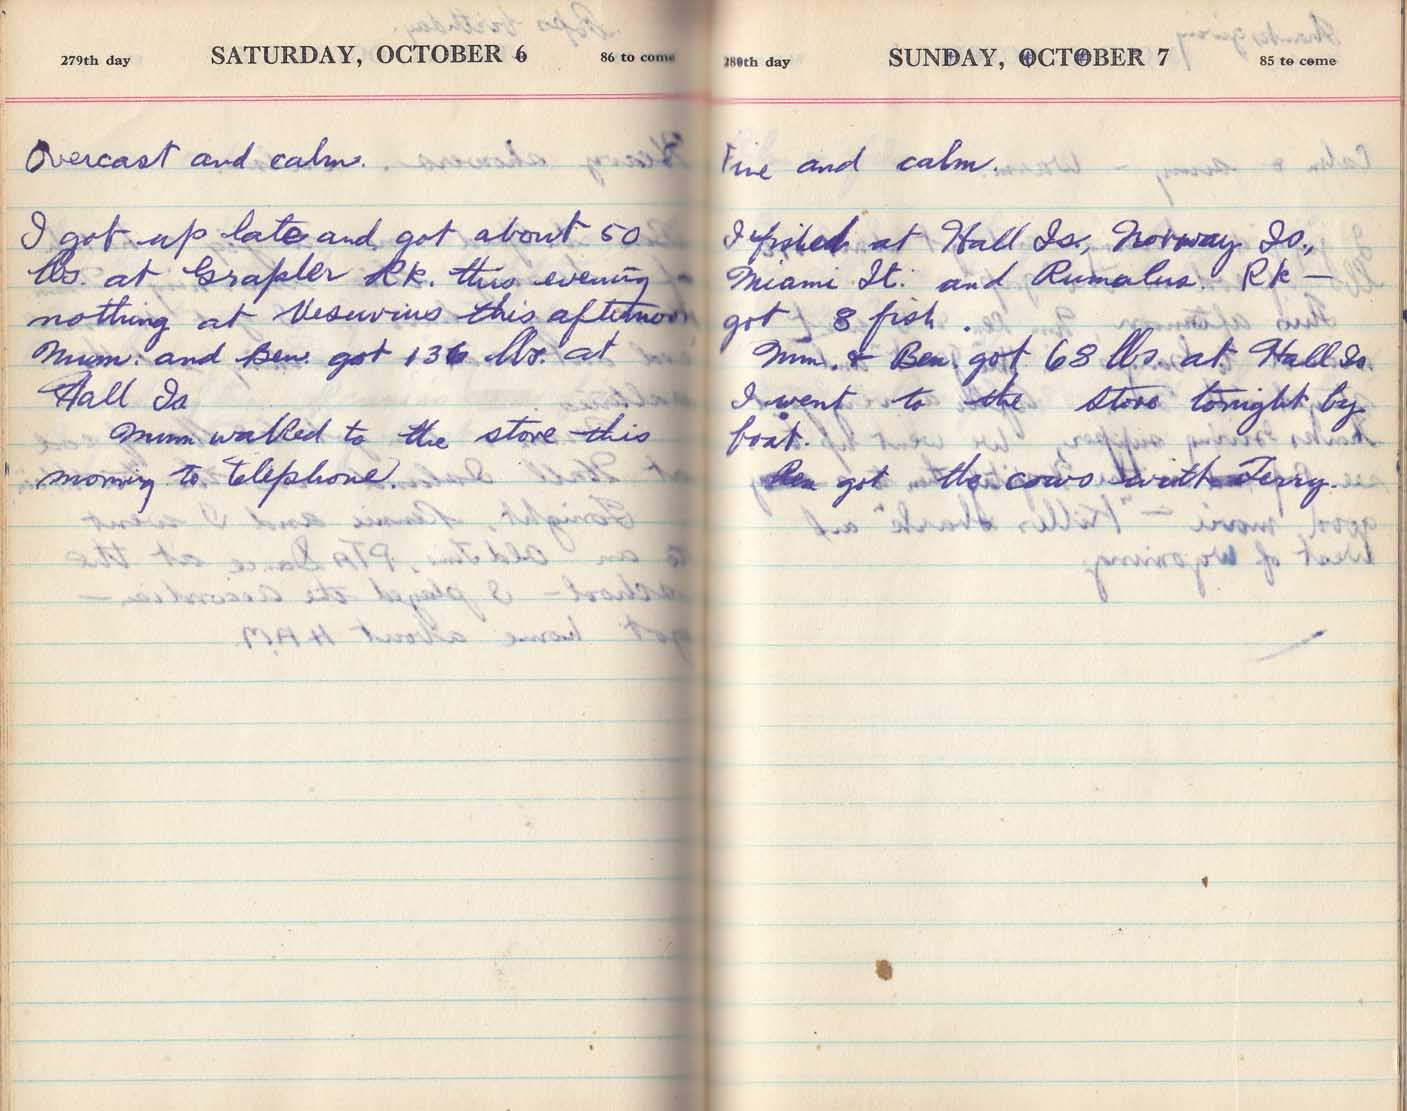 279th day SATURDAY, OCTOBER 6 86 to come
Overcast and calm.
I got up late and got about 50
lbs. at Grapler Rk. this evening
nothing at Vesuvius this afternoon
Mum. and Ben. got 136 lbs. at
Hall Is
Mum walked to the store this
morning to telephone.
280th day SUNDAY, OCTOBER 7 85 to come
Fine and calm.
I fished at Hall Is., Norway Is.,
Miami It. and Rumalus Rk —
got 8 fish.
Mum. & Ben. got 68 lbs. at Hall Is.
I went to the store tonight by
boat.
Ben got the cows with Terry.